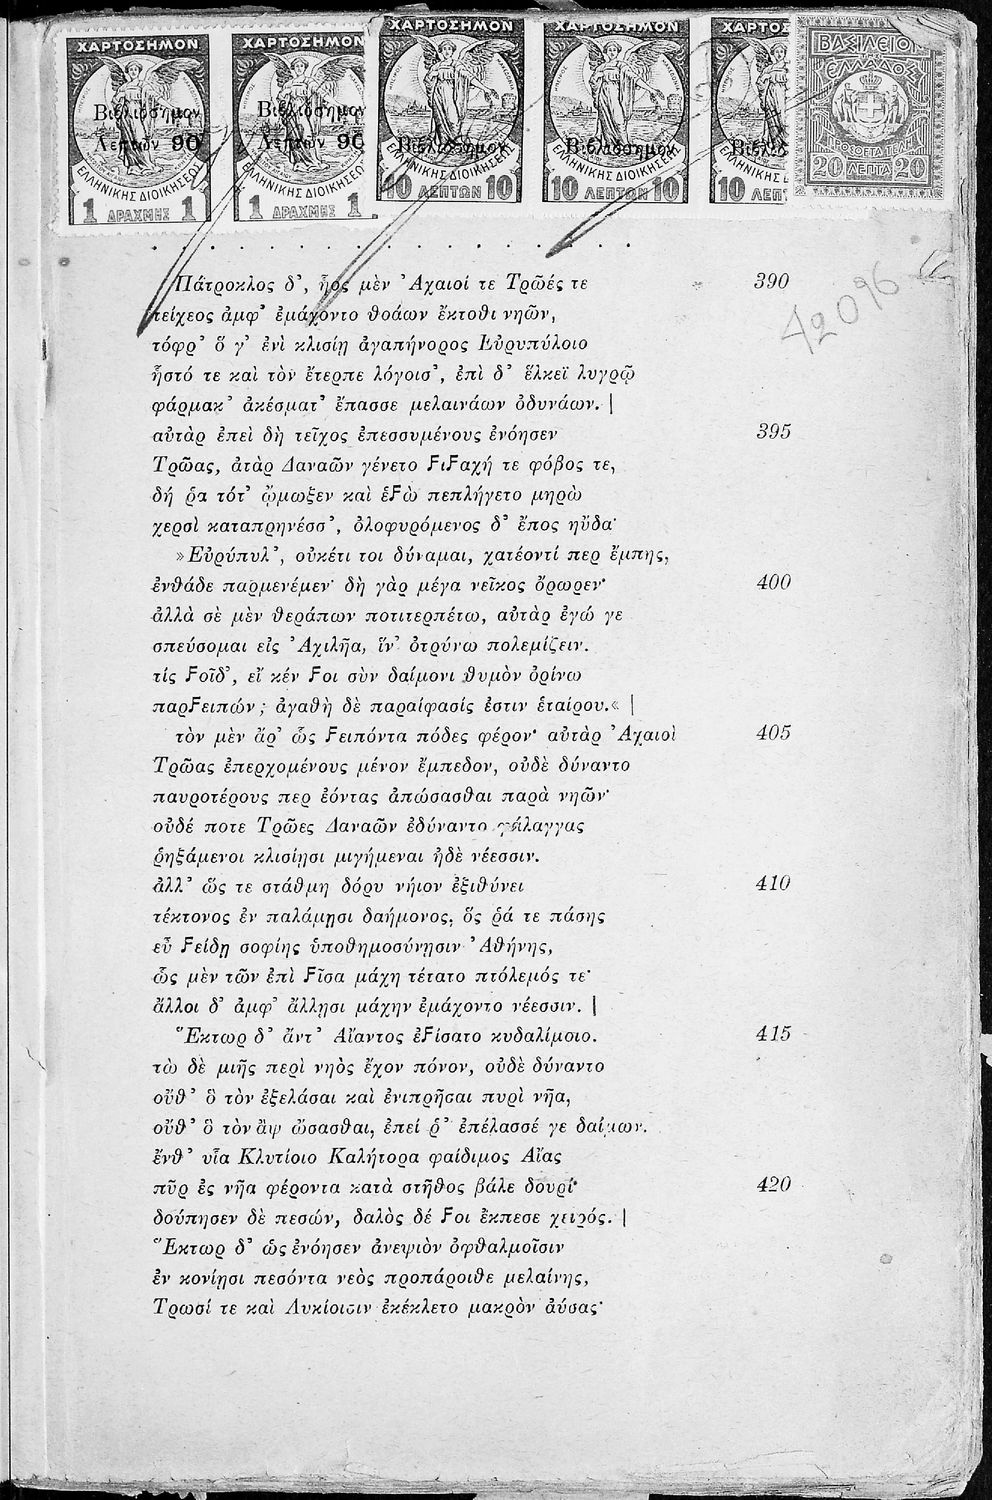 ΧΑΡΤΟΣΗΜΟΝ ΧΑΡΤΟΣΗΜΟΝ ΧΑΡΤΟΣΗΜΟΝ ΧΑΡΤΟΣΗΜΟΝ ΧΑΡΤΟΣ ΒΑΣΙΛΕΙΟΝ
ΕΛΛΑΔΟΣ
Βιβλιόσημον Βιβλιόσημον Βιβλιόσημον Βιβλιόσημον Βιβλιόσ
Λεπτῶν 90 Λεπτῶν 90
ΕΛΛΗΝΙΚΗΣ ΔΙΟΙΚΗΣΕΩ ΕΛΛΗΝΙΚΗΣ ΔΙΟΙΚΗΣΕΩ ΕΛΛΗΝΙΚΗΣ ΔΙΟΙΚΗΣΕΩ ΕΛΛΗΝΙΚΗΣ ΔΙΟΙΚΗΣΕΩ ΕΛΛΗΝΙΚΗΣ ΠΡΟΣΘΕΤΑ ΤΕΛΗ
1 ΔΡΑΧΜΗΣ 1 1 ΔΡΑΧΜΗΣ 1 10 ΛΕΠΤΩΝ 10 10 ΛΕΠΤΩΝ 10 10 ΛΕΠ 20 ΛΕΠΤΑ 20
42096
. . . . . . . . . . . . . . . . .
Πάτροκλος δ’, ἧος μὲν ’Αχαιοί τε Τρῶές τε 390
τείχεος ἀμφ’ ἐμάχοντο θοάων ἔκτοθι νηῶν,
τόφρ’ ὅ γ’ ἐνὶ κλισίῃ ἀγαπήνορος Εὐρυπύλοιο
ἧστό τε καὶ τὸν ἔτερπε λόγοισ’, ἐπὶ δ’ ἕλκεϊ λυγρῷ
φάρμακ’ ἀκέσματ’ ἔπασσε μελαινάων ὀδυνάων. |
αὐτὰρ ἐπεὶ δὴ τεῖχος ἐπεσσυμένους ἐνόησεν 395
Τρῶας, ἀτὰρ Δαναῶν γένετο ϜιϜαχή τε φόβος τε,
δή ῥα τότ’ ᾤμωξεν καὶ ἑϜὼ πεπλήγετο μηρὼ
χερσὶ καταπρηνέσσ’, ὀλοφυρόμενος δ’ ἔπος ηὔδα·
»Εὐρύπυλ’, οὐκέτι τοι δύναμαι, χατέοντί περ ἔμπης,
ἐνθάδε παρμενέμεν· δὴ γὰρ μέγα νεῖκος ὄρωρεν· 400
ἀλλὰ σὲ μὲν θεράπων ποτιτερπέτω, αὐτὰρ ἐγώ γε
σπεύσομαι εἰς ’Αχιλῆα, ἵν’ ὀτρύνω πολεμίζειν.
τίς Ϝοῖδ’, εἴ κέν Ϝοι σὺν δαίμονι θυμὸν ὀρίνω
παρϜειπών; ἀγαθὴ δὲ παραίφασίς ἐστιν ἑταίρου.« |
τὸν μὲν ἄρ’ ὣς Ϝειπόντα πόδες φέρον· αὐτὰρ ’Αχαιοὶ 405
Τρῶας ἐπερχομένους μένον ἔμπεδον, οὐδὲ δύναντο
παυροτέρους περ ἐόντας ἀπώσασθαι παρὰ νηῶν·
οὐδέ ποτε Τρῶες Δαναῶν ἐδύναντο φάλαγγας
ῥηξάμενοι κλισίῃσι μιγήμεναι ἠδὲ νέεσσιν.
ἀλλ’ ὥς τε στάθμη δόρυ νήιον ἐξιθύνει 410
τέκτονος ἐν παλάμῃσι δαήμονος, ὅς ῥά τε πάσης
εὖ Ϝείδῃ σοφίης ὑποθημοσύνῃσιν ’Αθήνης,
ὣς μὲν τῶν ἐπὶ Ϝῖσα μάχη τέτατο πτόλεμός τε·
ἄλλοι δ’ ἀμφ’ ἄλλῃσι μάχην ἐμάχοντο νέεσσιν. |
Ἕκτωρ δ’ ἄντ’ Αἴαντος ἐϜίσατο κυδαλίμοιο. 415
τὼ δὲ μιῆς περὶ νηὸς ἔχον πόνον, οὐδὲ δύναντο
οὔθ’ ὃ τὸν ἐξελάσαι καὶ ἐνιπρῆσαι πυρὶ νῆα,
οὔθ’ ὃ τὸν ἂψ ὤσασθαι, ἐπεί ῥ’ ἐπέλασσέ γε δαίμων.
ἔνθ’ υἷα Κλυτίοιο Καλήτορα φαίδιμος Αἴας
πῦρ ἐς νῆα φέροντα κατὰ στῆθος βάλε δουρί· 420
δούπησεν δὲ πεσών, δαλὸς δέ Ϝοι ἔκπεσε χειρός. |
Ἕκτωρ δ’ ὡς ἐνόησεν ἀνεψιὸν ὀφθαλμοῖσιν
ἐν κονίῃσι πεσόντα νεὸς προπάροιθε μελαίνης,
Τρωσί τε καὶ Λυκίοισιν ἐκέκλετο μακρὸν ἀύσας·